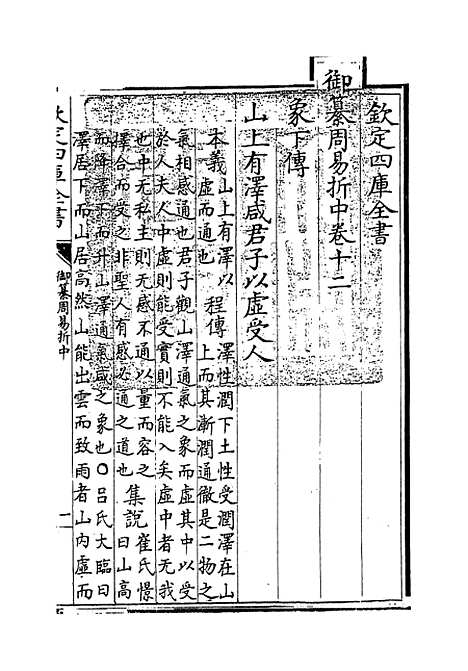 欽定四庫全書
御纂周易折中卷十二
象下傳
山上有澤咸君子以虛受人
本義
山上有澤以
虛而通也
程傳
澤性潤下土性受潤澤在山
上而其漸潤通徹是二物之
氣相感通也君子觀山澤通氣之象而虛其中以受
於人夫人中虛則能受實則不能入矣虛中者无我
也中无私主則无感不通以量而容之
擇合而受之非聖人有感必通之道也
集說
崔氏憬
曰山高
而降澤下而升山澤通氣咸之象也○呂氏大臨曰
澤居下而山居高然山能出雲而致雨者山內虛而
欽定四庫全書
御纂周易折中